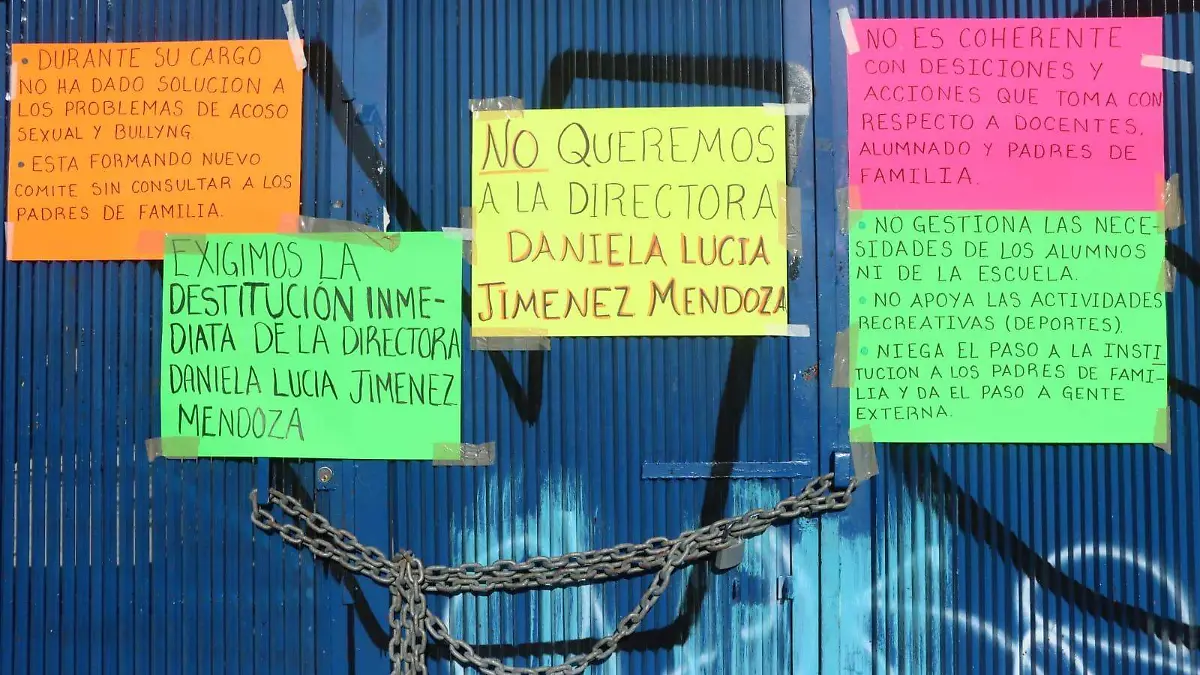 • DURANTE SU CARGO
NO HA DADO SOLUCION A
LOS PROBLEMAS DE ACOSO
SEXUAL Y BULLYNG
• ESTA FORMANDO NUEVO
COMITE SIN CONSULTAR A LOS
PADRES DE FAMILIA.
EXIGIMOS LA
DESTITUCIÓN INME-
DIATA DE LA DIRECTORA
DANIELA LUCIA JIMENEZ
MENDOZA
NO QUEREMOS
A LA DIRECTORA
DANIELA LUCIA
JIMENEZ MENDOZA
NO ES COHERENTE
CON DESICIONES Y
ACCIONES QUE TOMA CON
RESPECTO A DOCENTES,
ALUMNADO Y PADRES DE
FAMILIA.
• NO GESTIONA LAS NECE-
SIDADES DE LOS ALUMNOS
NI DE LA ESCUELA.
• NO APOYA LAS ACTIVIDADES
RECREATIVAS (DEPORTES).
• NIEGA EL PASO A LA INSTI
TUCION A LOS PADRES DE FAMI-
LIA Y DA EL PASO A GENTE
EXTERNA.